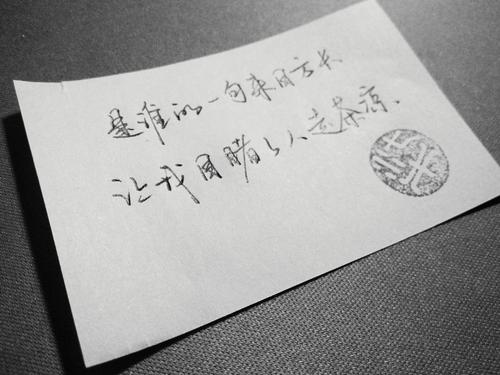 是谁的一句来日方长
让我目睹了人走茶凉.